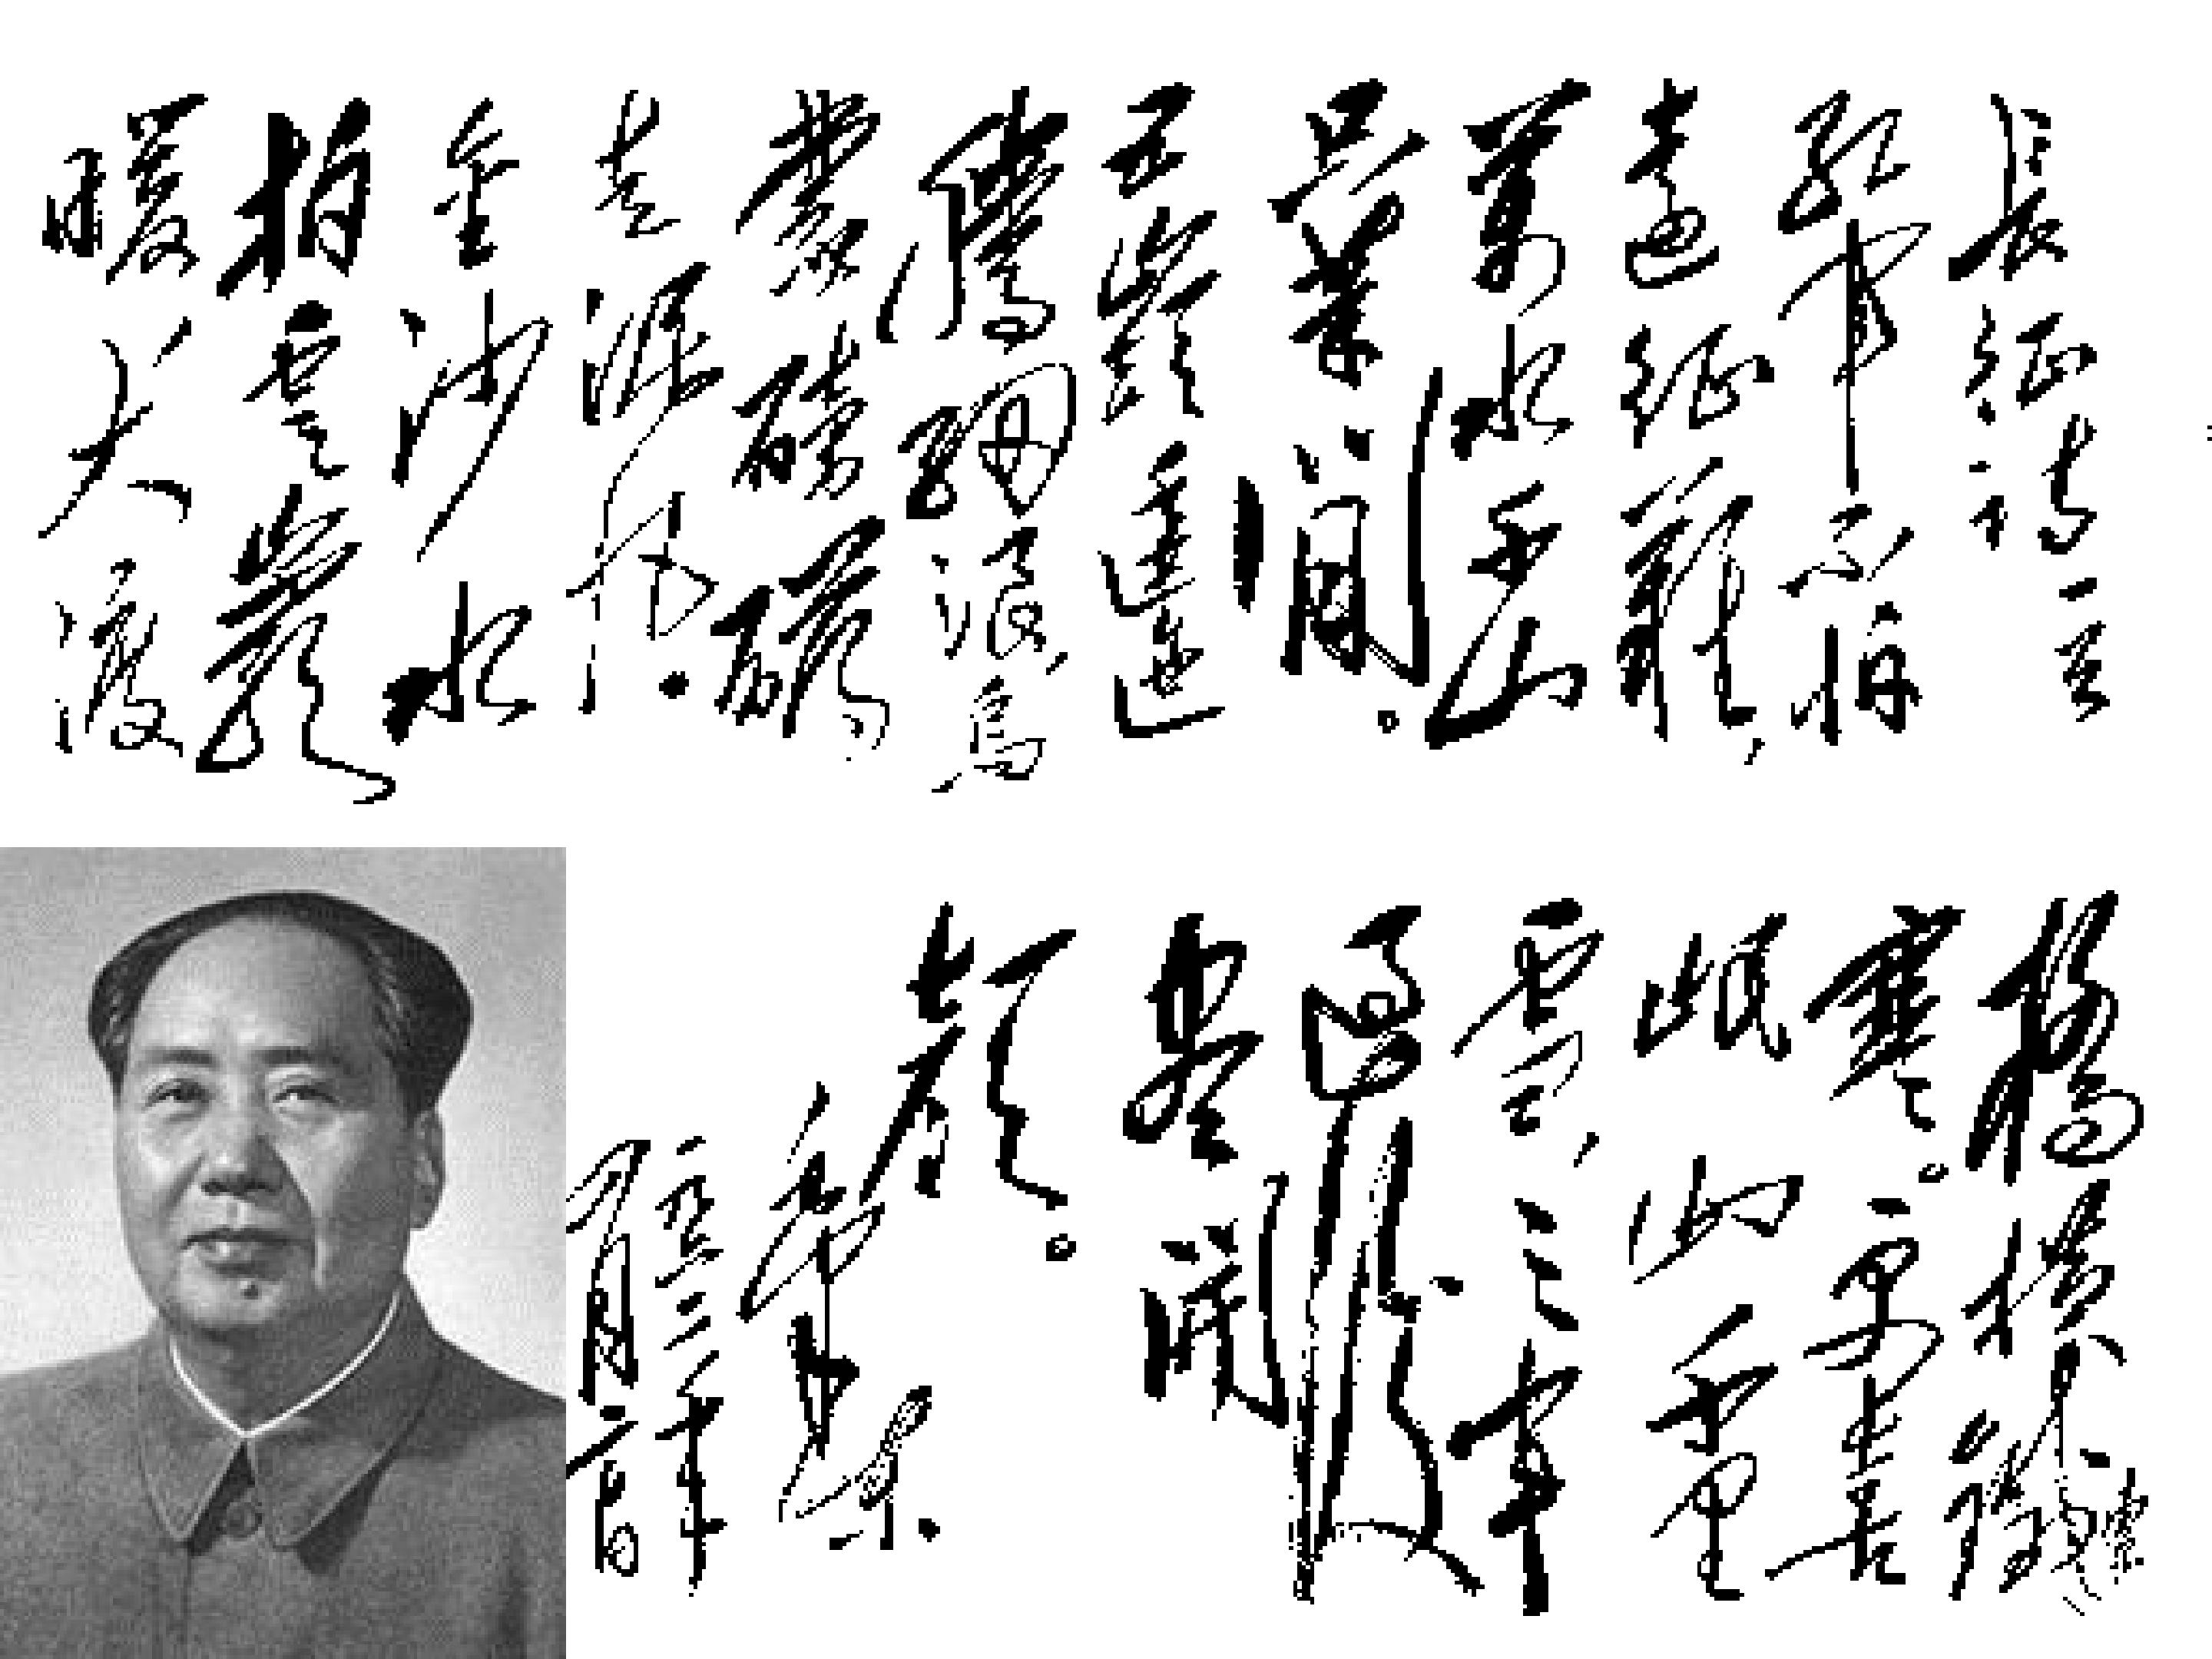 長征詩一首
紅軍不怕
遠征難,
萬水千山
只等閒。
五嶺逶迤
騰細浪,烏
蒙磅礴
走泥丸.
金沙水
拍雲巖
暖大渡
橋橫鐵索
寒。更喜
岷山千里
雪,三軍
過後
盡開
顏。
毛澤東